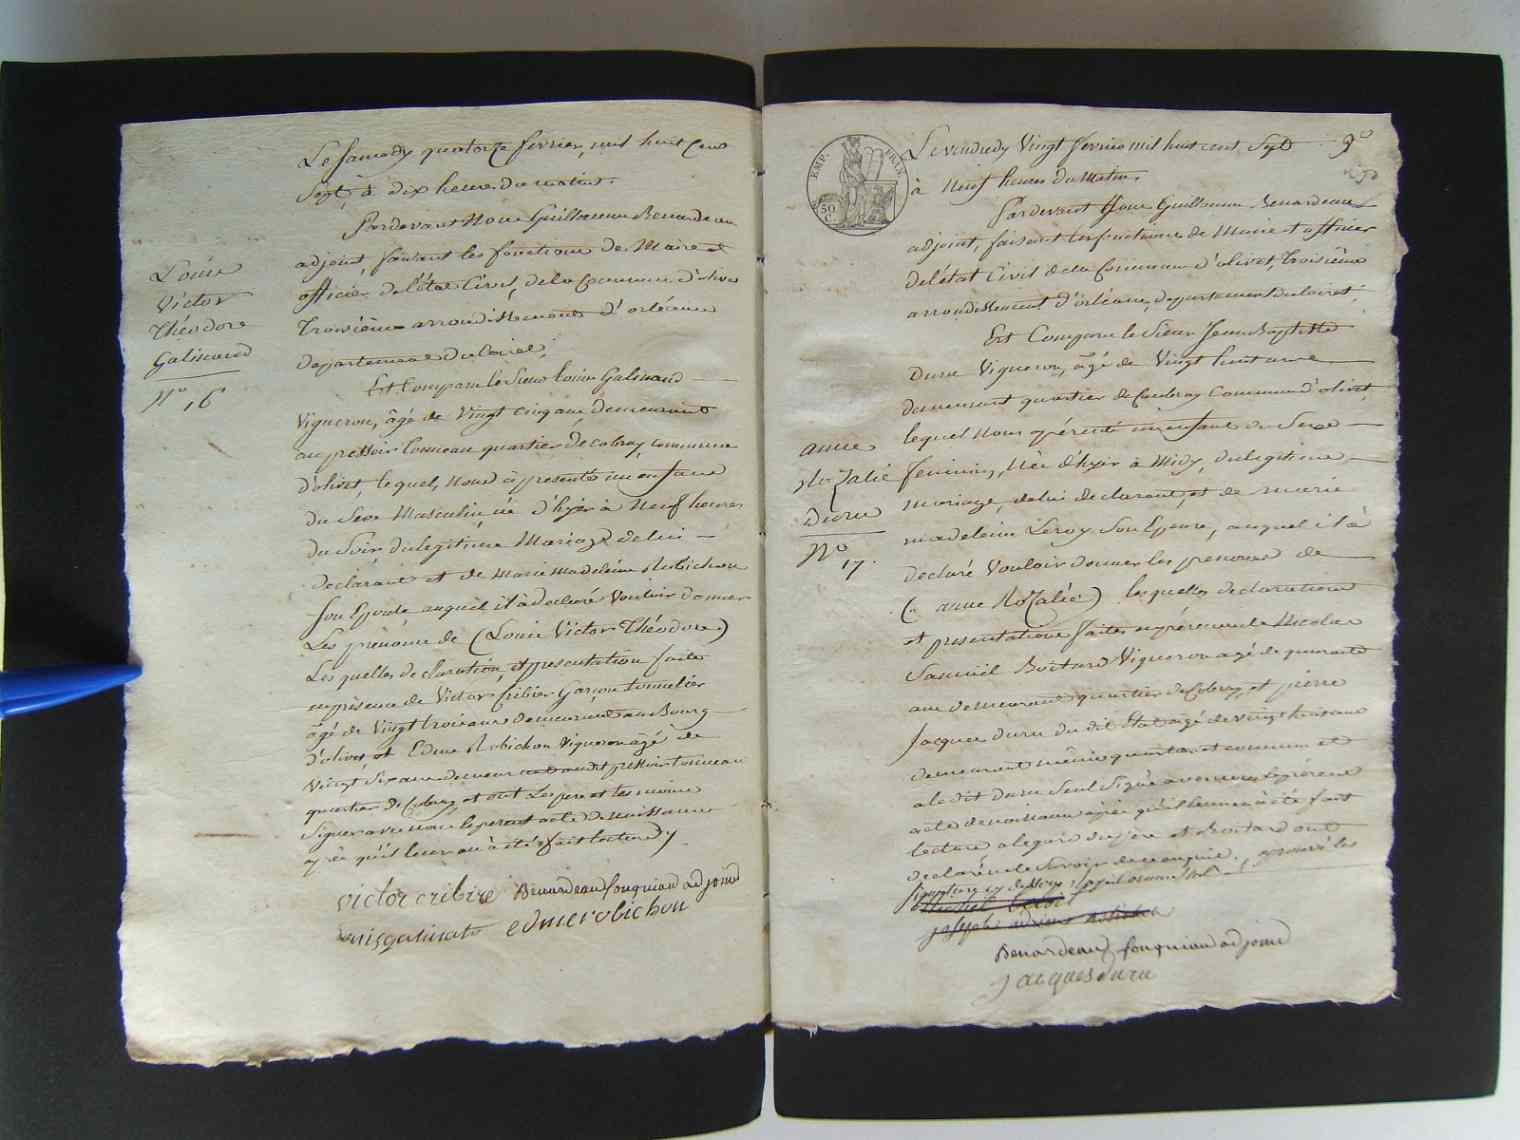 Le samedy quatorze février, mil huit cent
Sept, à dix heures du matin.
Pardevant Nous Guillaume Benardeau
adjoint, faisant les fonctions de Maire et
officier de l'état Civil, de la Commune d'olivet
troisième arrondissement d'orléans
departement du loiret,
Est Comparu le Sieur Louis Galinand
Vigneron, âgé de Vingt cinq ans, demeurant
au pressoir tonneau quartier de Cobray, commune
d'olivet, lequel, nous à presenté un enfant
du Sexe Masculin, né d'hyer à Neuf heures
du Soir, du legitime Mariage de lui
declarant et de Marie Madeleine Robichon
Son Epouse, auquel il à declaré Vouloir donner
Les prenoms de (Louis Victor Théodore)
Les quelles declaration, et presentation faite
en présence de Victor Cribier Garçon tonnelier
âgé de Vingt trois ans demeurant au Bourg
d'olivet, et Edme Robichon Vigneron agé de
Vingt Six ans demeurant audit pressoir tonneau
quartier de Cobray, et ont Les pere et les témoins
Signer avec nous le present acte de Naissance
après qu'il leur en à été fait lecture
victor cribiré Benardeau fouqniau adjoind
louis galinat edmerobichon
Louis
Victor
Théodore
Galinand
N° 16
EMP. FRAN.
50
C
Le vendredy Vingt fevrier mil huit cent Sept 9e
à Neuf heures du Matin,
Pardevant Nous Guillaume Benardeau
adjoint, faisant les fonctions de Maire et officier
de l'état Civil de la Commune d'olivet, troisième
arrondissement d'orléans, departement du loiret,
Est Comparu le Sieur Jean Baptiste
Duru Vigneron, âgé de Vingt huit ans
demeurant quartier de Coubray Commune d'olivet,
lequel Nous a présenté un enfant du Sexe
feminin, Née d'hyer à Midy, du legitime
mariage, de lui declarant, et de Marie
madeleine Leroy Son Epouse, auquel il à
declaré Vouloir donner les prenoms de
(anne Rozalie) lesquelles declarations
et presentations faites en présence de Nicolas
Samuël Boitard Vigneron agé de quarante
ans demeurant quartier de Cobray, et pierre
Jacques duru du dit Etat agé de vingt huit ans
demeurant même quartier et commune et
a ledit duru Seul Signé avec nous le présent
acte de naissance après qu'il leur en à été fait
lecture a l'égard du père et Boitard ont
declaré ne Savoir de ce enquis. , approuvé les
Benardeau fouqniau adjoind
jacquesduru
anne
Rozalie
Duru
N° 17.